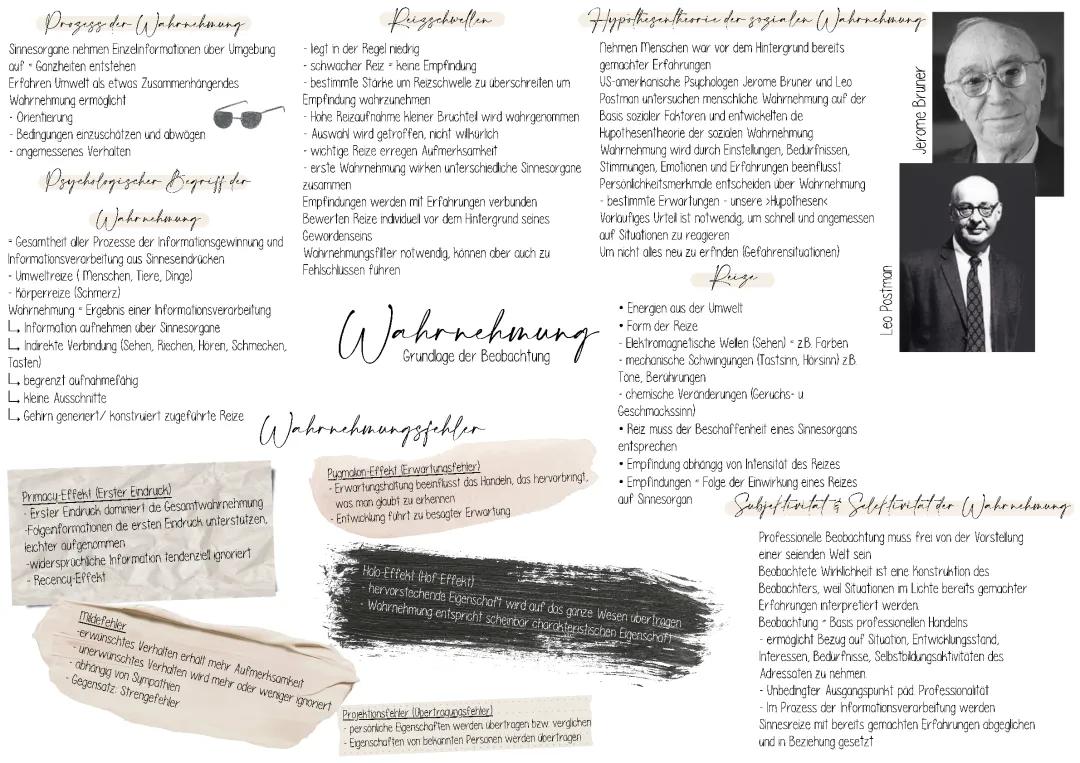 Prozess der Wahrnehmung
Sinnesorgane nehmen Einzelinformationen über Umgebung
auf = Ganzheiten entstehen
Erfahren Umwelt als etwas Zusammenhängendes
Wahrnehmung ermöglicht
- Orientierung
- Bedingungen einzuschätzen und abwägen
- angemessenes Verhalten
Psychologischer Begriff der
Wahrnehmung
= Gesamtheit aller Prozesse der Informationsgewinnung und
Informationsverarbeitung aus Sinneseindrücken
- Umweltreize ( Menschen, Tiere, Dinge)
- Körperreize (Schmerz)
Wahrnehmung = Ergebnis einer Informationsverarbeitung
↳ Information aufnehmen über Sinnesorgane
↳ Indirekte Verbindung (Sehen, Riechen, Hören, Schmecken,
Tasten)
↳ begrenzt aufnahmefähig
↳ kleine Ausschnitte
↳ Gehirn generiert/ konstruiert zugeführte Reize
Reizschwellen
- liegt in der Regel niedrig
- schwacher Reiz = keine Empfindung
- bestimmte Stärke um Reizschwelle zu überschreiten um
Empfindung wahrzunehmen
- Hohe Reizaufnahme kleiner Bruchteil wird wahrgenommen
- Auswahl wird getroffen, nicht willkürlich
- wichtige Reize erregen Aufmerksamkeit
- erste Wahrnehmung wirken unterschiedliche Sinnesorgane
zusammen
Empfindungen werden mit Erfahrungen verbunden
Bewerten Reize individuell vor dem Hintergrund seines
Gewordenseins
Wahrnehmungsfilter notwendig, können aber auch zu
Fehlschlüssen führen
Hypothesentheorie der sozialen Wahrnehmung
Nehmen Menschen war vor dem Hintergrund bereits
gemachter Erfahrungen
US-amerikanische Psychologen Jerome Bruner und Leo
Postman untersuchen menschliche Wahrnehmung auf der
Basis sozialer Faktoren und entwickelten die
Hypothesentheorie der sozialen Wahrnehmung
Wahrnehmung wird durch Einstellungen, Bedürfnissen,
Stimmungen, Emotionen und Erfahrungen beeinflusst
Persönlichkeitsmerkmale entscheiden über Wahrnehmung
- bestimmte Erwartungen - unsere >Hypothesen<
Vorläufiges Urteil ist notwendig, um schnell und angemessen
auf Situationen zu reagieren
Um nicht alles neu zu erfinden (Gefahrensituationen)
Jerome Bruner
Leo Postman
Wahrnehmung
Grundlage der Beobachtung
Reize
• Energien aus der Umwelt
• Form der Reize
- Elektromagnetische Wellen (Sehen) = z.B. Farben
- mechanische Schwingungen (Tastsinn, Hörsinn) z.B.
Töne, Berührungen
- chemische Veränderungen (Geruchs- u.
Geschmackssinn)
• Reiz muss der Beschaffenheit eines Sinnesorgans
entsprechen
• Empfindung abhängig von Intensität des Reizes
• Empfindungen = Folge der Einwirkung eines Reizes
auf Sinnesorgan
Wahrnehmungsfehler
Primacy-Effekt (Erster Eindruck)
- Erster Eindruck dominiert die Gesamtwahrnehmung
-Folgeinformationen die ersten Eindruck unterstützen,
leichter aufgenommen
-widersprüchliche Information tendenziell ignoriert
- Recency-Effekt
Pygmalion-Effekt (Erwartungsfehler)
- Erwartungshaltung beeinflusst das Handeln, das hervorbringt,
was man glaubt zu erkennen
- Entwicklung führt zu besagter Erwartung
Halo-Effekt (Hof-Effekt)
- hervorstechende Eigenschaft wird auf das ganze Wesen übertragen
- Wahrnehmung entspricht scheinbar charakteristischen Eigenschaft
Mildefehler
-erwünschtes Verhalten erhält mehr Aufmerksamkeit
- unerwünschtes Verhalten wird mehr oder weniger ignoriert
- abhängig von Sympathien
- Gegensatz: Strengefehler
Projektionsfehler (Übertragungsfehler)
- persönliche Eigenschaften werden übertragen bzw. verglichen
- Eigenschaften von bekannten Personen werden übertragen
Subjektivität & Selektivität der Wahrnehmung
Professionelle Beobachtung muss frei von der Vorstellung
einer seienden Welt sein
Beobachtete Wirklichkeit ist eine Konstruktion des
Beobachters, weil Situationen im Lichte bereits gemachter
Erfahrungen interpretiert werden
Beobachtung = Basis professionellen Handelns
- ermöglicht Bezug auf Situation, Entwicklungsstand,
Interessen, Bedürfnisse, Selbstbildungsaktivitäten des
Adressaten zu nehmen
- Unbedingter Ausgangspunkt päd. Professionalität
- Im Prozess der Informationsverarbeitung werden
Sinnesreize mit bereits gemachten Erfahrungen abgeglichen
und in Beziehung gesetzt